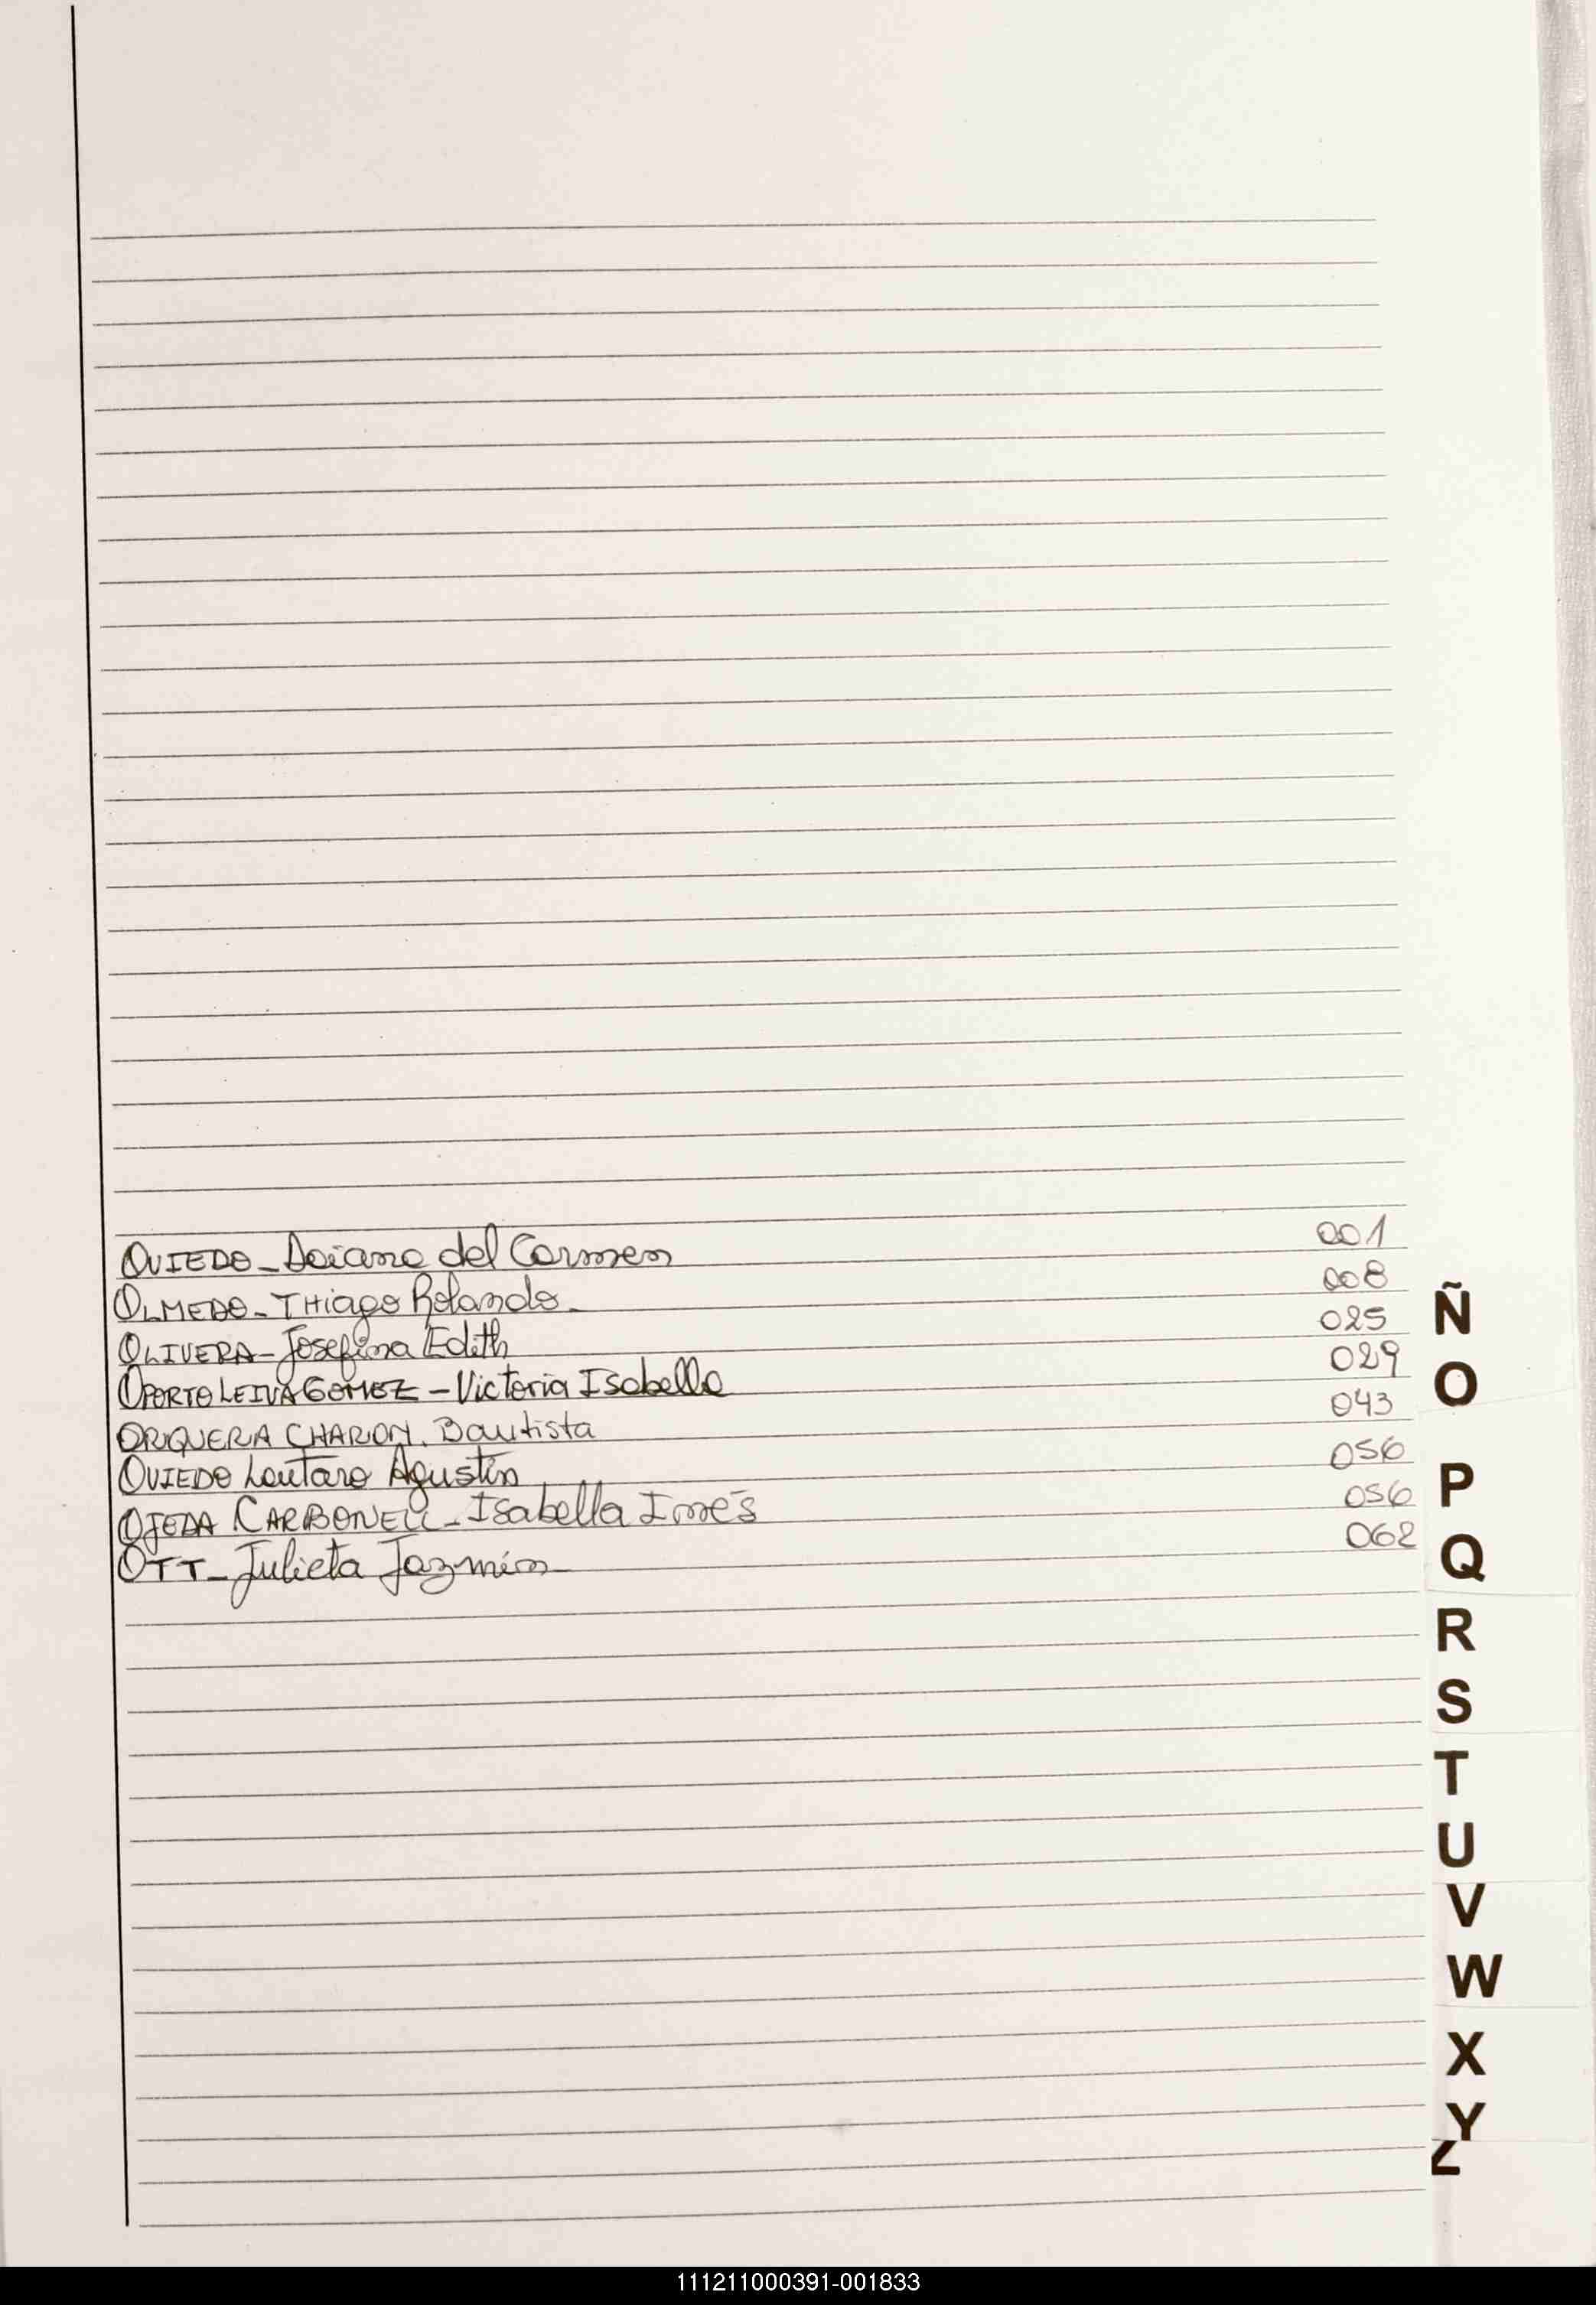 OVIEDO - Daiana del Carmen 001
OLMEDO - THiago Rolando - 008
OLIVERA - Josefina Edith 025
OPORTO LEIVA GOMEZ - Victoria Isabella 029
ORQUERA CHARON. Bautista 043
OVIEDO Lautaro Agustín 056
OJEDA CARBONELL - Isabella Inés 056
OTT - Julieta Jazmín 062
Ñ
O
P
Q
R
S
T
U
V
W
X
Y
Z
111211000391-001833